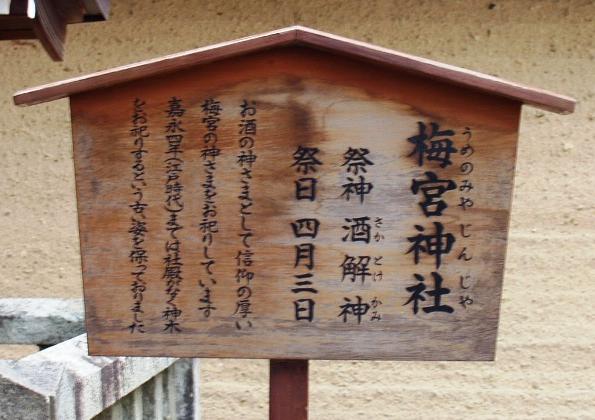 梅宮神社
うめのみや じんじゃ
祭神 酒解神
さかとけかみ
祭日 四月三日
お酒の神さまとして信仰の厚い
梅宮の神さまをお祀りしています
嘉永四年(江戸時代)までは社殿がなく神木
をお祀りするという古い姿を保っておりました